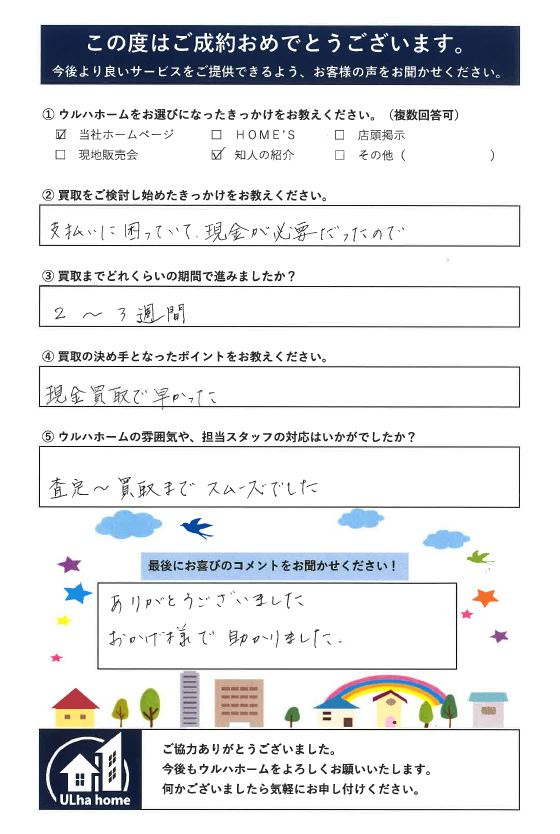 この度はご成約おめでとうございます。
今後より良いサービスをご提供できるよう、お客様の声をお聞かせください。
① ウルハホームをお選びになったきっかけをお教えください。（複数回答可）
☑ 当社ホームページ ☐ HOME'S ☐ 店頭掲示
☐ 現地販売会 ☑ 知人の紹介 ☐ その他（　　　　　）
② 買取をご検討し始めたきっかけをお教えください。
支払いに困っていて、現金が必要だったので
③ 買取までどれくらいの期間で進みましたか？
2 〜 3 週間
④ 買取の決め手となったポイントをお教えください。
現金買取で早かった
⑤ ウルハホームの雰囲気や、担当スタッフの対応はいかがでしたか？
査定〜買取まで スムーズでした
最後にお喜びのコメントをお聞かせください！
ありがとうございました
おかげ様で助かりました。
ご協力ありがとうございました。
今後もウルハホームをよろしくお願いいたします。
何かございましたら気軽にお申し付けください。
ULha home